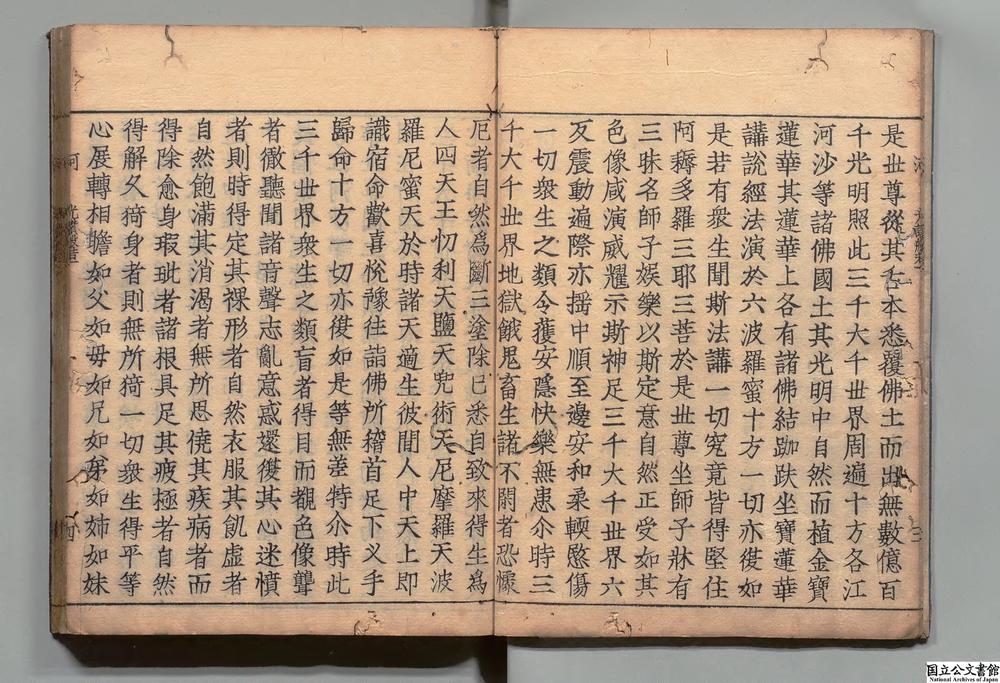 是丗尊從其舌本悉覆佛土而出無數億百
千光明照此三千大千丗界周遍十方各江
河沙等諸佛國土其光明中自然而植金寶
蓮華其蓮華上各有諸佛結跏趺坐寶蓮華
講說經法演於六波羅蜜十方一切亦復如
是若有衆生聞斯法講一切究竟皆得堅住
阿耨多羅三耶三菩於是丗尊坐師子牀有
三昧名師子娛樂以斯定意自然正受如其
色像咸演威耀示斯神足三千大千丗界六
反震動遍際亦揺中順至邊安和柔輭愍傷
一切衆生之類令獲安隱快樂無患尒時三
千大千丗界地獄餓鬼畜生諸不閑者恐懅
厄者自然爲斷三塗除已悉自致來得生爲
人四天王忉利天鹽天兜術天尼摩羅天波
羅尼蜜天於時諸天適生彼閒人中天上即
識宿命歡喜悅豫往詣佛所稽首足下叉手
歸命十方一切亦復如是等無差特尒時此
三千丗界衆生之類盲者得目而覩色像聾
者徹聽聞諸音聲志亂意惑還復其心迷憒
者則時得定其裸形者自然衣服其飢虛者
自然飽滿其消渴者無所思僥其疾病者而
得除愈身瑕玼者諸根具足其疲極者自然
得解久猗身者則無所猗一切衆生得平等
心展轉相瞻如父如母如兄如弟如姉如妹
河
四
国立公文書館
National Archives of Japan